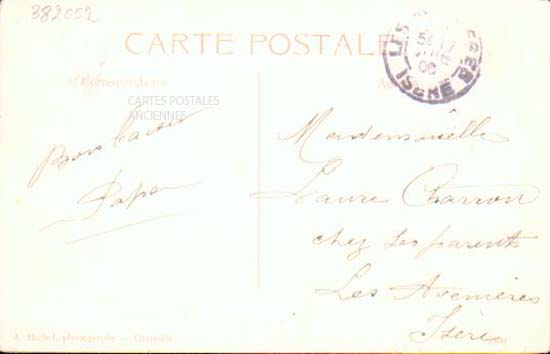 382052
CARTE POSTALE
Correspondance
CARTES POSTALES
ANCIENNES
Bons baisers
Papa
Mademoiselle
Laure Charron
chez ses parents
Les Avenières
Isère
A. Michel, photographe -
ISERE